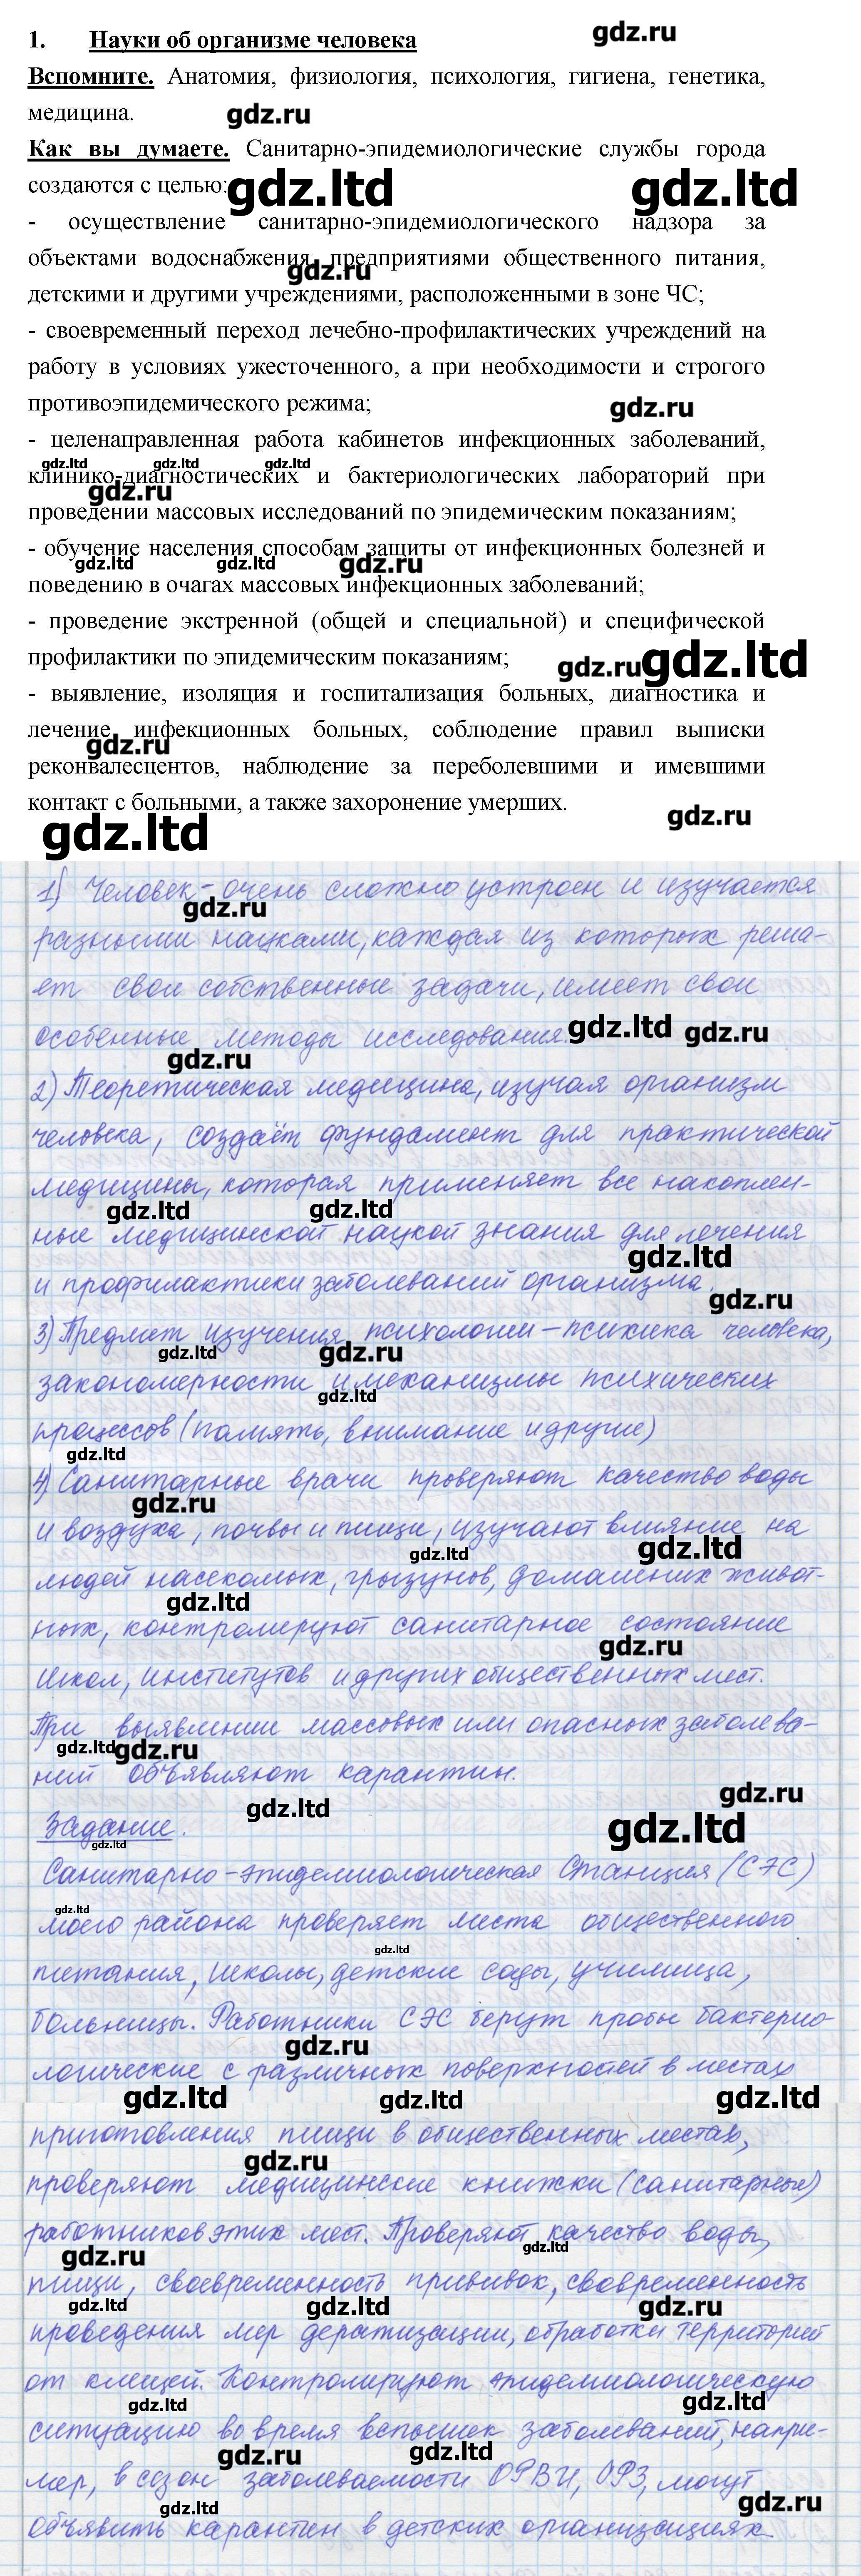 1. Науки об организме человека
Вспомните. Анатомия, физиология, психология, гигиена, генетика,
медицина.
Как вы думаете. Санитарно-эпидемиологические службы города
создаются с целью:
- осуществление санитарно-эпидемиологического надзора за
объектами водоснабжения, предприятиями общественного питания,
детскими и другими учреждениями, расположенными в зоне ЧС;
- своевременный переход лечебно-профилактических учреждений на
работу в условиях ужесточенного, а при необходимости и строгого
противоэпидемического режима;
- целенаправленная работа кабинетов инфекционных заболеваний,
клинико-диагностических и бактериологических лабораторий при
проведении массовых исследований по эпидемическим показаниям;
- обучение населения способам защиты от инфекционных болезней и
поведению в очагах массовых инфекционных заболеваний;
- проведение экстренной (общей и специальной) и специфической
профилактики по эпидемическим показаниям;
- выявление, изоляция и госпитализация больных, диагностика и
лечение инфекционных больных, соблюдение правил выписки
реконвалесцентов, наблюдение за переболевшими и имевшими
контакт с больными, а также захоронение умерших.
1) Человек - очень сложно устроен и изучается
разными науками, каждая из которых реша-
ет свои собственные задачи, имеет свои
особенные методы исследования.
2) Теоретическая медицина, изучая организм
человека, создаёт фундамент для практической
медицины, которая применяет все накоплен-
ные медицинской наукой знания для лечения
и профилактики заболеваний организма.
3) Предмет изучения психологии - психика человека,
закономерности и механизмы психических
процессов (память, внимание и другие)
4) Санитарные врачи проверяют качество воды
и воздуха, почвы и пищи, изучают влияние на
людей насекомых, грызунов, домашних живот-
ных, контролируют санитарное состояние
школ, институтов и других общественных мест.
При выявлении массовых или опасных заболева-
ний объявляют карантин.
Задание.
Санитарно-эпидемиологическая Станция (СЭС)
моего района проверяет места общественного
питания, школы, детские сады, училища,
больницы. Работники СЭС берут пробы бактерио-
логические с различных поверхностей в местах
приготовления пищи в общественных местах,
проверяют медицинские книжки (санитарные)
работников этих мест. Проверяют качество воды,
пищи, своевременность прививок, своевременность
проведения мер дератизации, обработки территорий
от клещей. Контролируют эпидемиологическую
ситуацию во время вспышек заболеваний, напри-
мер, в сезон заболеваемости ОРВИ, ОРЗ, могут
объявить карантин в детских организациях.